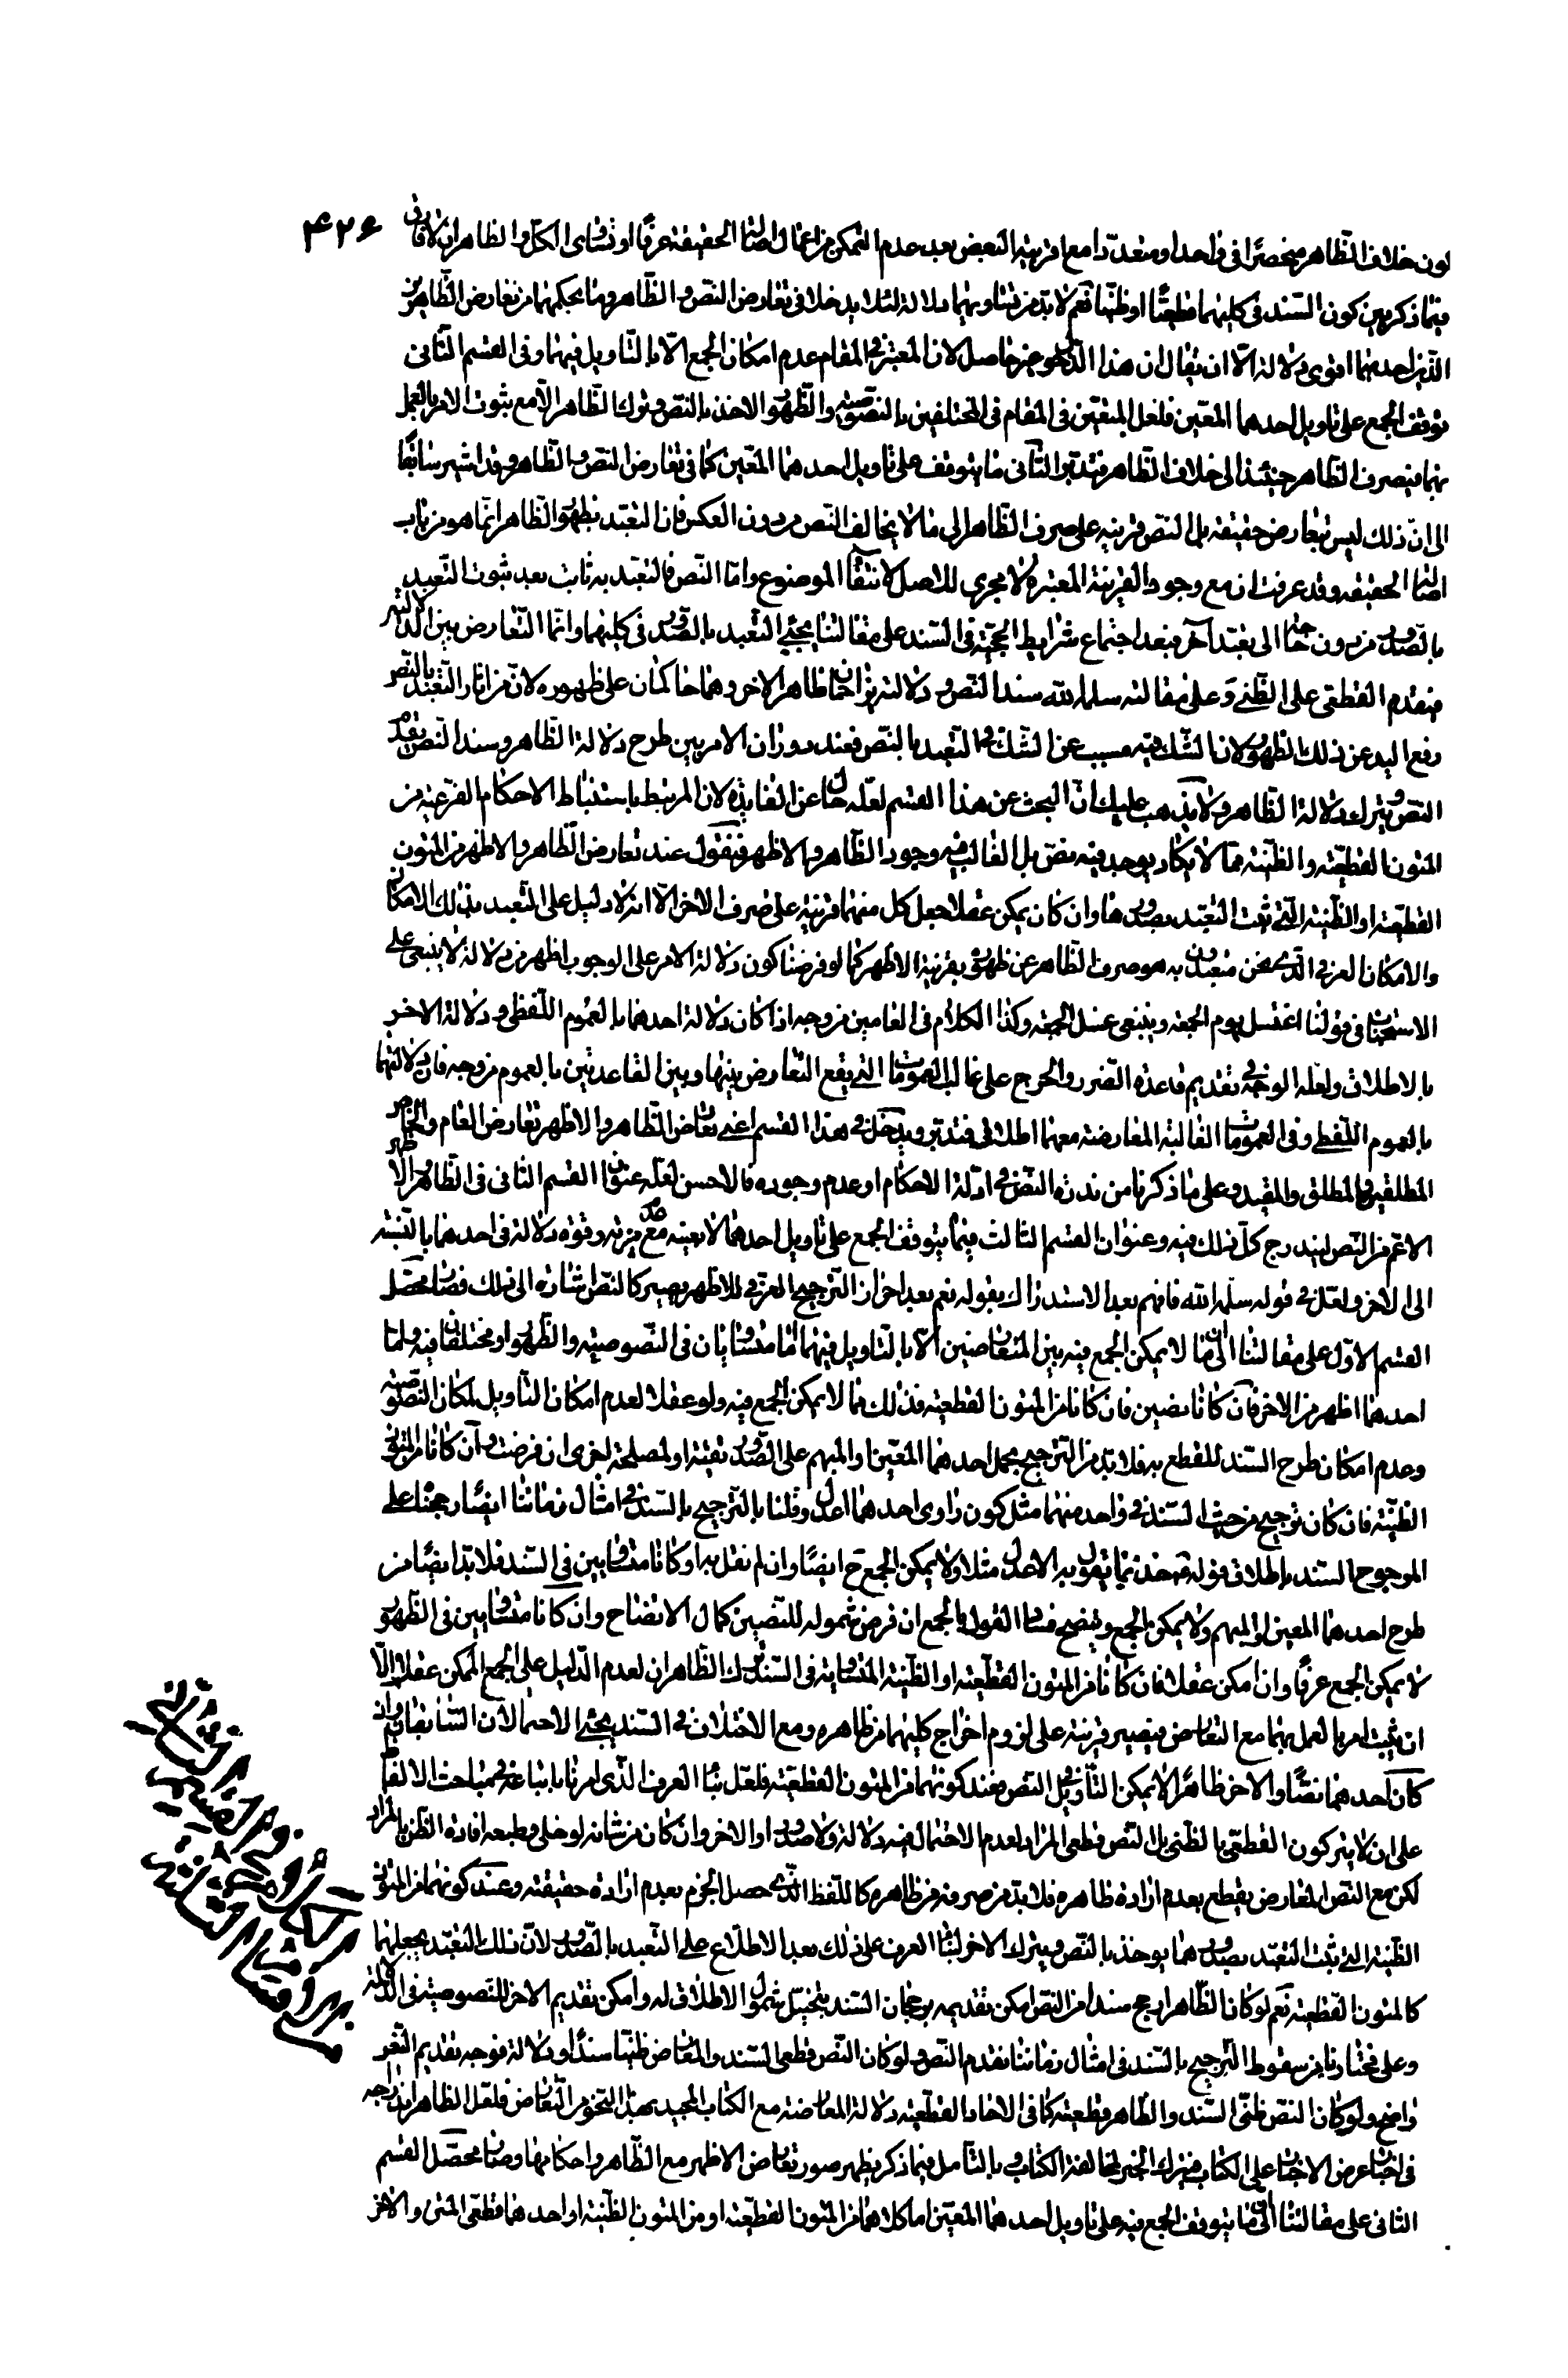 ۴۲۶
كون خلاف الظاهر منحصرا في واحد او متعددا مع اقربية البعض بعد عدم التمكن من اعمال اصالة الحقيقة عرفا او تساوى الكل والظاهر ان لا فارق
فيما ذكر بين كون السند في كليهما قطعيا او ظنيا نعم لا بد من تساويهما دلالة لئلا يدخلا في تعارض النص والظاهر وما بحكمهما من تعارض الظاهرين
الذين احدهما اقوى دلالة الا ان يقال ان هذا غير حاصل لان المعتبر في المقام عدم امكان الجمع الا بالتاويل فيهما وفي القسم الثاني
توقف الجمع على تاويل احدهما المعين فلعل المتعين في المقام في المختلفين بالنصوصية والظهور الاخذ بالنص وترك الظاهر الا مع ثبوت الامر بالعمل
بهما فيصرف الظاهر حينئذ الى خلاف الظاهر فتدبر الثاني ما يتوقف على تاويل احدهما المعين كما في تعارض النص والظاهر وقد اشير سابقا
الى ان ذلك ليس بتعارض حقيقة بل النص قرينة على صرف الظاهر الى ما لا يخالف النص من دون العكس فان التعبد بظهور الظاهر انما هو من باب
اصالة الحقيقة وقد عرفت ان مع وجود القرينة المعتبرة لا مجرى للاصل لانتفاء الموضوع واما النص فالتعبد به ثابت بعد ثبوت التعبد
بالصدور من دون حاجة الى تعبد آخر فبعد اجتماع شرايط الحجية في السند على مقالتنا يجئ التعبد بالصدور في كليهما وانما التعارض بين الدلالتين
فيقدم القطعى على الظنى وعلى مقالته سلمه الله سند النص ودلالته يزاحمان ظاهر الاخر وهما حاكمان على ظهوره لان من اثار التعبد بالنص
رفع اليد عن ذلك الظهور لان الشك فيه مسبب عن الشك في التعبد بالنص فعند دوران الامر بين طرح دلالة الظاهر وسند النص يقدم
النص ويترك دلالة الظاهر ولا يذهب عليك ان البحث عن هذا القسم لعله خال عن الفايدة لان المرتبط باستنباط الاحكام الفرعية من
المتون القطعية والظنية مما لا يكاد يوجد فيه نص بل الغالب فيه وجود الظاهر والاظهر فنقول عند تعارض الظاهر والاظهر من المتون
القطعية او الظنية التي ثبت التعبد بصدورها وان كان يمكن عقلا جعل كل منهما قرينة على صرف الاخر الا انه لا دليل على التعبد بذلك الامكان
والامكان العرفي الذى نحن متعبدون به هو صرف الظاهر عن ظهوره بقرينة الاظهر كما لو فرضنا كون دلالة الامر على الوجوب اظهر من دلالة لا ينبغى على
الاستحباب في قولنا اغتسل يوم الجمعة وينبغى غسل الجمعة وكذا الكلام في العامين من وجه اذا كان دلالة احدهما بالعموم اللفظى ودلالة الاخر
بالاطلاق ولعله الوجه في تقديم قاعدة الضرر والحرج على غالب العمومات التى يقع التعارض بينها وبين القاعدتين بالعموم من وجه فان دلالتهما
بالعموم اللفظى وفى العمومات الغالبة المعارضة معهما اطلاقى فتدبر ويدخل في هذا القسم اعنى تعارض الظاهر والاظهر تعارض العام والخاص
المطلقين والمطلق والمقيد وعلى ما ذكرنا من ندرة النص في ادلة الاحكام او عدم وجوده فالاحسن لعله عنوان القسم الثانى في الظاهر والاظهر
الاعم من النص ليندرج كل ذلك فيه وعنوان القسم الثالث فيما يتوقف الجمع على تاويل احدهما لا بعينه مع عدم مزية وقوة دلالة في احدهما بالنسبة
الى الاخر ولعل في قوله سلمه الله فافهم بعد الاستدراك بقوله نعم بعد احراز الترجيح العرفى للاظهر يصير كالنص اشارة الى ذلك فصار محصل
القسم الاول على مقالتنا اى ما لا يمكن الجمع فيه بين المتعارضين الا بالتاويل فيهما اما متساويان في النصوصية والظهور او مختلفان فيه واما
احدهما اظهر من الاخر فان كانا نصين فان كانا من المتون القطعية فذلك مما لا يمكن الجمع فيه ولو عقلا لعدم امكان التاويل لمكان النصوصية
وعدم امكان طرح السند للقطع به فلا بد من الترجيح بحمل احدهما المعين او المبهم على الصدور تقية او لمصلحة اخرى ان فرضت وان كانا من المتون
الظنية فان كان ترجيح من حيث السند في واحد منهما مثل كون راوى احدهما اعدل وقلنا بالترجيح بالسند في امثال زماننا ايضا رجحناه على
المرجوح السند باطلاق قوله خذ بما يقول به الاعدل مثلا ولا يمكن الجمع ح ايضا وان لم نقل به او كانا متساويين في السند فلا بد ايضا من
طرح احدهما المعين او المبهم ولا يمكن الجمع ويتضح فساد القول بالجمع ان فرض شموله للنصين كمال الاتضاح وان كانا متساويين في الظهور
لا يمكن الجمع عرفا وان امكن عقلا فان كانا من المتون القطعية او الظنية المتساوية في السند يترك الظاهران لعدم الدليل على الجمع الممكن عقلا الا
ان يثبت امر بالعمل بهما مع التعارض فيصير قرينة على لزوم اخراج كليهما من ظاهره ومع الاختلاف في السند يجئ الاحتمالان السابقان وان
كان احدهما نصا والاخر ظاهرا لا يمكن التاويل في النص فعند كونهما من المتون القطعية فلعل بناء العرف الذى امرنا باتباعه في مباحث الالفاظ
على ان لا يترك القطعى بالظنى بل النص قطعى المراد لعدم الاحتمال فيه دلالة ولا صدورا والاخر وان كان من شانه لو خلى وطبعه افادة الظن بالمراد
لكن مع النص المعارض يقطع بعدم ارادة ظاهره فلا بد من صرفه من ظاهره كاللفظ الذى حصل الجزم بعدم ارادة حقيقته وعند كونهما من المتون
الظنية التى ثبت التعبد بصدورهما يوخذ بالنص ويترك الاخر لبناء العرف على ذلك بعد الاطلاع على التعبد بالصدور لان ذلك التعبد يجعلهما
كالمتون القطعية نعم لو كان الظاهر ارجح سندا من النص امكن تقديمه برجحان السند بتخيل شمول الاطلاق له وامكن تقديم الاخر للنصوصية في الدلالة
وعلى مختارنا من سقوط الترجيح بالسند في امثال زماننا يقدم النص ولو كان النص قطعى السند والمعارض ظنيا سندا ودلالة فوجه تقديم النص
واضح ولو كان النص ظنى السند والظاهر قطعيته كما في الاخاد القطعية دلالة المعارضة مع الكتاب المجيد بهذا النحو من التعارض فلعل الظاهر اندراجه
في اخبار عرض الاخبار على الكتاب فيترك الخبر لمخالفة الكتاب وبالتامل فيما ذكر يظهر صور تعارض الاظهر مع الظاهر واحكامها وصار محصل القسم
الثانى على مقالتنا اى ما يتوقف الجمع فيه على تاويل احدهما المعين اما كلاهما من المتون القطعية او من المتون الظنية او احدهما قطعى المتن والاخر